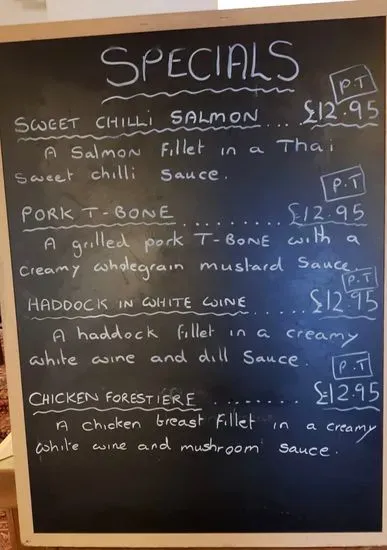 SPECIALS
P.T
SWEET CHILLI SALMON... £12.95
A Salmon fillet in a Thai
Sweet chilli Sauce.
P.T
PORK T-BONE ......... £12.95
A grilled pork T-BONE with a
creamy wholegrain mustard Sauce.
P.T
HADDOCK IN WHITE WINE ..... £12.95
A haddock fillet in a creamy
white wine and dill Sauce.
P.T
CHICKEN FORESTIERE ........ £12.95
A chicken breast fillet in a creamy
white wine and mushroom sauce.